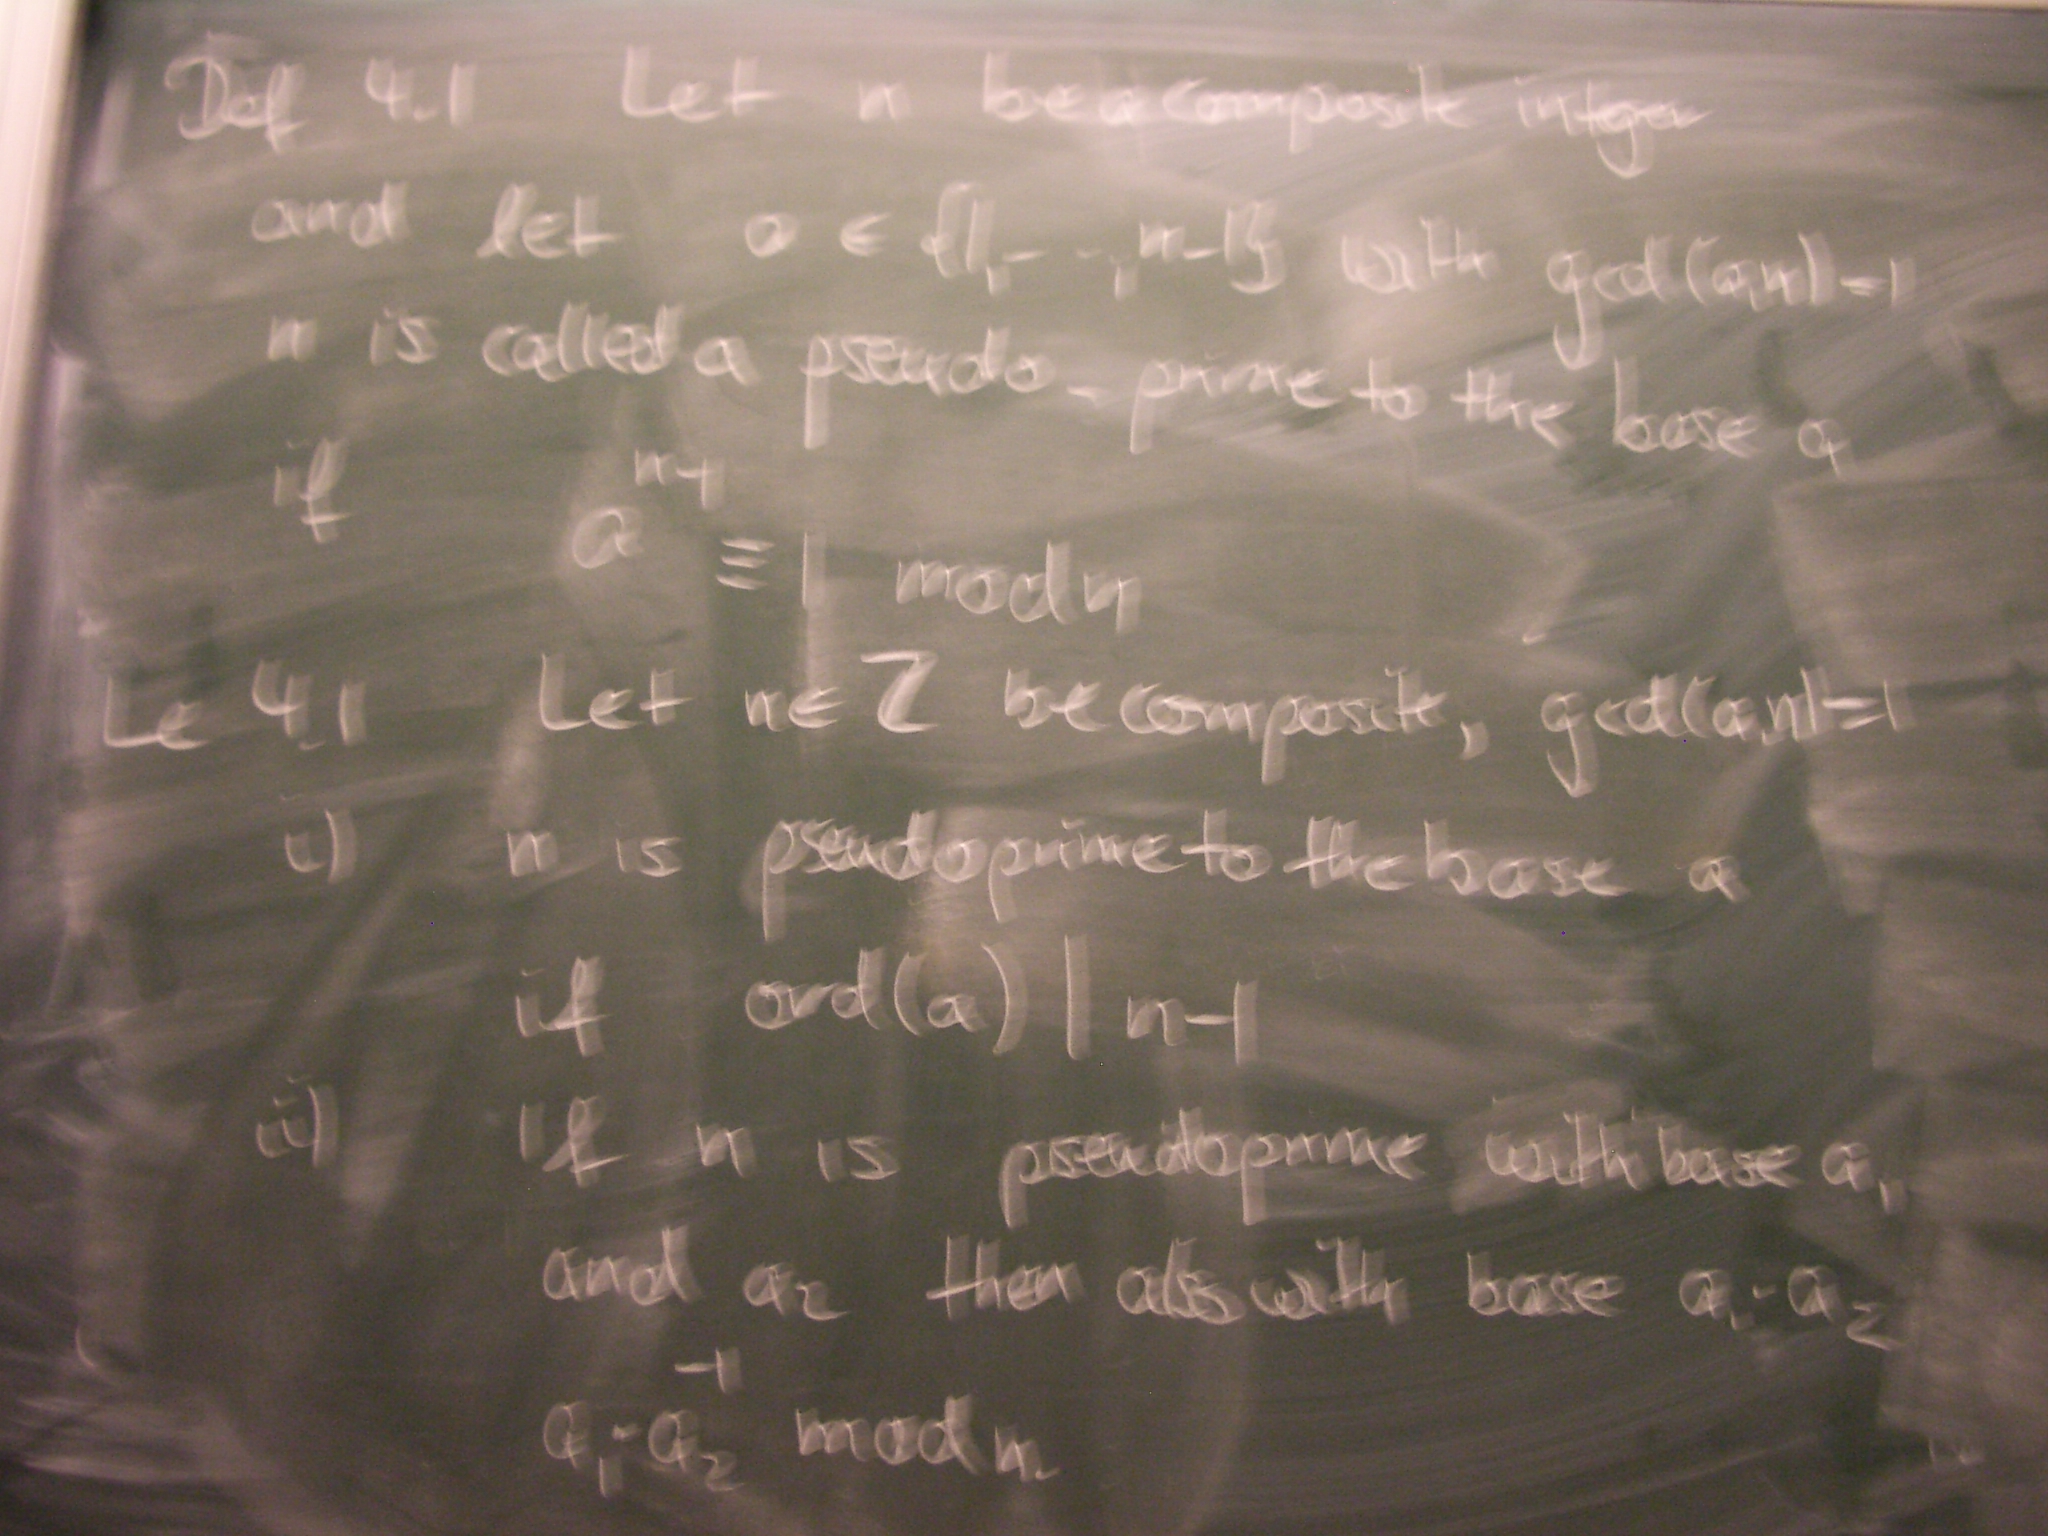 Def 4.1 Let n be a composite integer
and let a ∈ {1, - - , n-1} with gcd(a,n)=1
n is called a pseudo-prime to the base a
if a^{n-1} ≡ 1 mod n
Le 4.1 Let n ∈ Z be composite, gcd(a,n)=1
i) n is pseudoprime to the base a
if ord(a) | n-1
ii) If n is pseudoprime with base a₁
and a₂ then also with base a₁·a₂
a₁·a₂^{-1} mod n